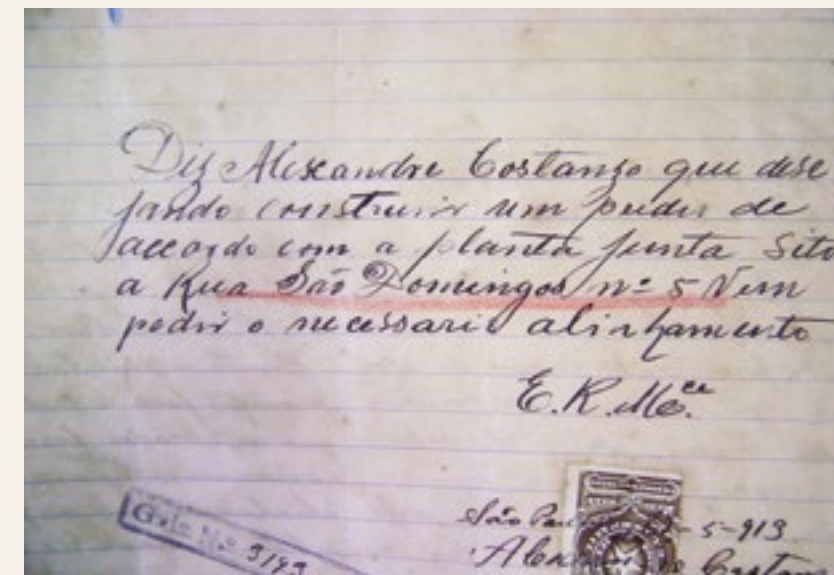 Diz Alexandre Costanzo que dese
jando construir um predio de
accordo com a planta junta sito
a Rua São Domingos nº 5 Vem
pedir o necessario alinhamento
E. R. Mce.
São Paulo -5-913
Alexandre Costanzo